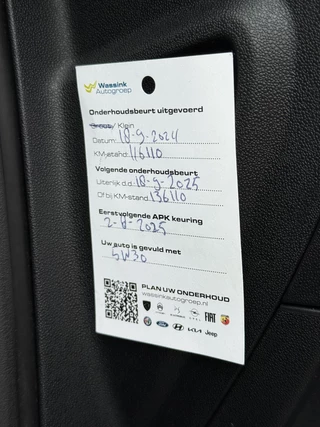 Wassink
Autogroep
Onderhoudsbeurt uitgevoerd
Groot / Klein
Datum: 18-9-2024
KM-stand: 116110
Volgende onderhoudsbeurt
Uiterlijk d.d: 18-9-2025
Of bij KM-stand: 136110
Eerstvolgende APK keuring
Uw auto is gevuld met
5W30
PLAN UW ONDERHOUD
wassinkautogroep.nl
FIAT
KIA Jeep